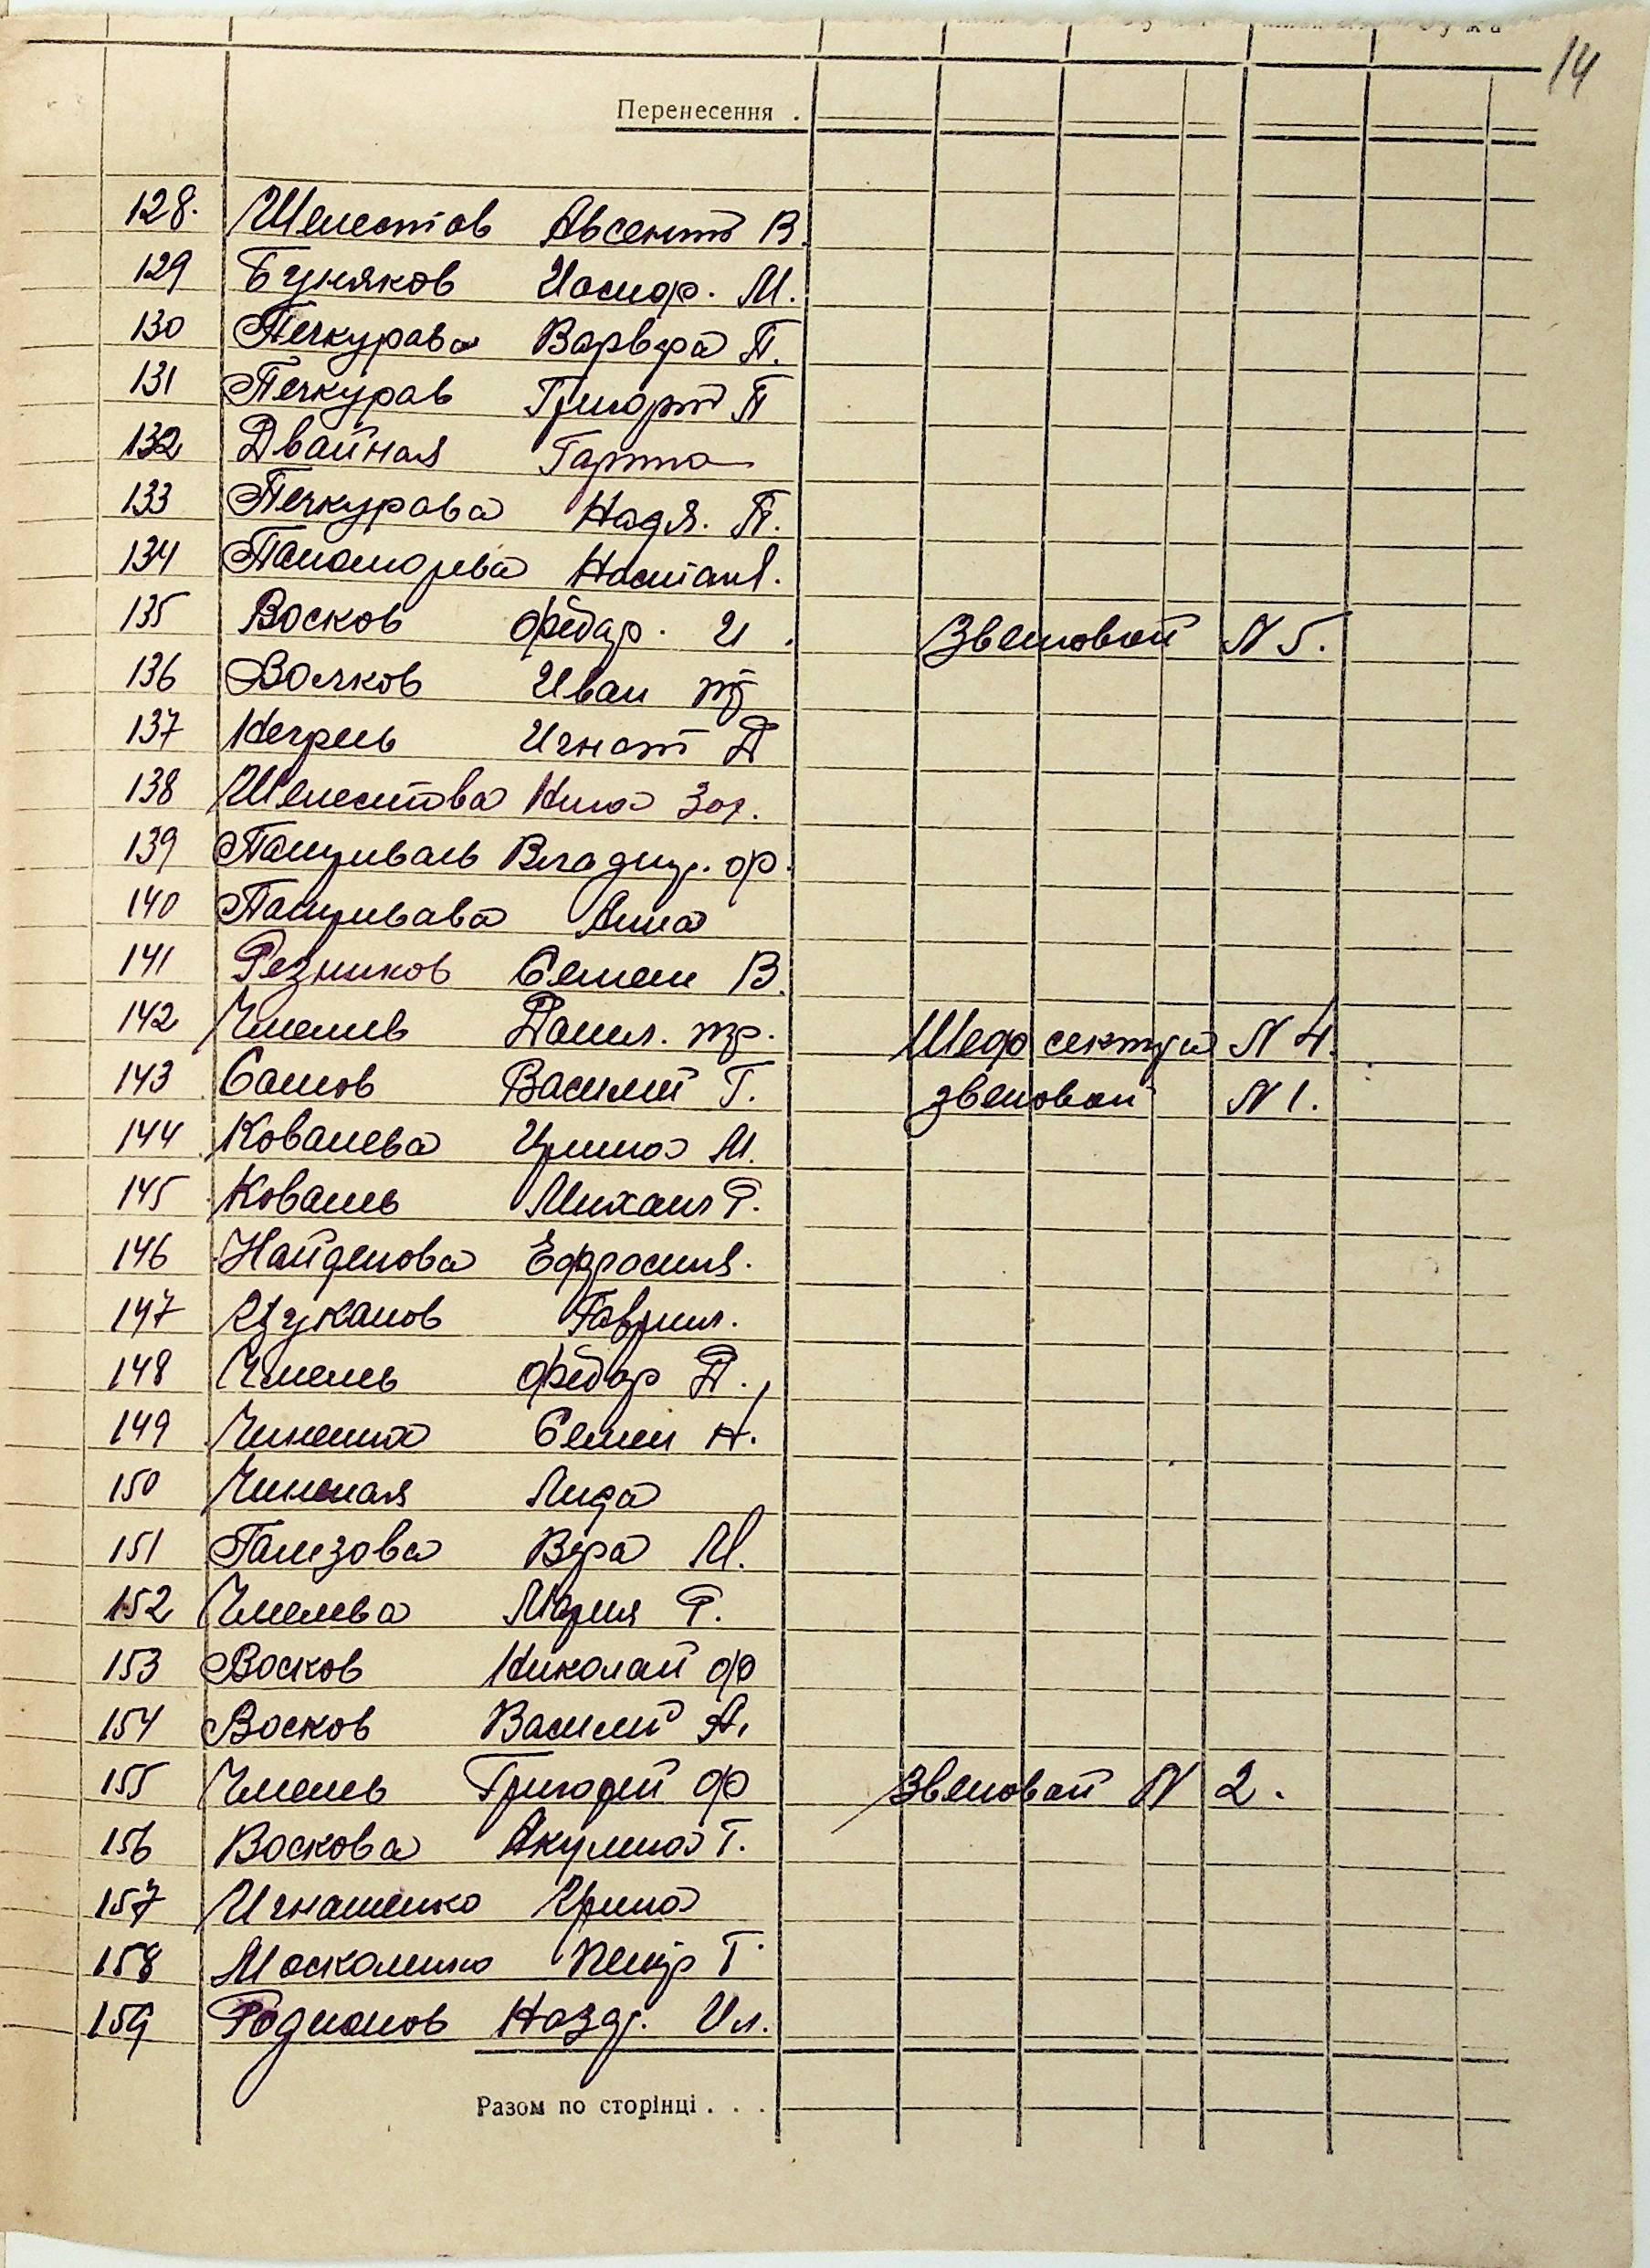 14
Перенесення .
128. Шелестов Авсентй В.
129 Буняков Иосиф. М.
130 Печкурова Варвара П.
131 Печкуров Григорій П
132 Двайная Гарпа
133 Печкурова Надя. П.
134 Панаморева Настая.
135 Восков Фёдар. И. Звеновой N 5.
136 Волчков Иван
137 Игнат П
138 Шелестова Нина Зах.
139 Владимр. Ф.
140 Анна
141 Резников Семен В.
142 Чмелив Данил. тр. Шеф сектрй N 4.
143 Сашов Василий Г. звеновой N 1.
144 Ковалева Ирина М.
145 Коваль Михаил Р.
146 Найденова Ефросиня.
147 Цуканов Гаврил.
148 Чмель Фёдар П.,
149 Семен Н.
150 Лида
151 Вера М.
152 Чмелева Мария Р.
153 Восков Николай Ф
154 Восков Василий А.
155 Чмель Григорей Ф Звеновой N 2.
156 Воскова Акулина Г.
157 Игнашенко Ирина
158 Москаленко Петр Г.
159 Родионов Назар. Ил.
Разом по сторінці . . .